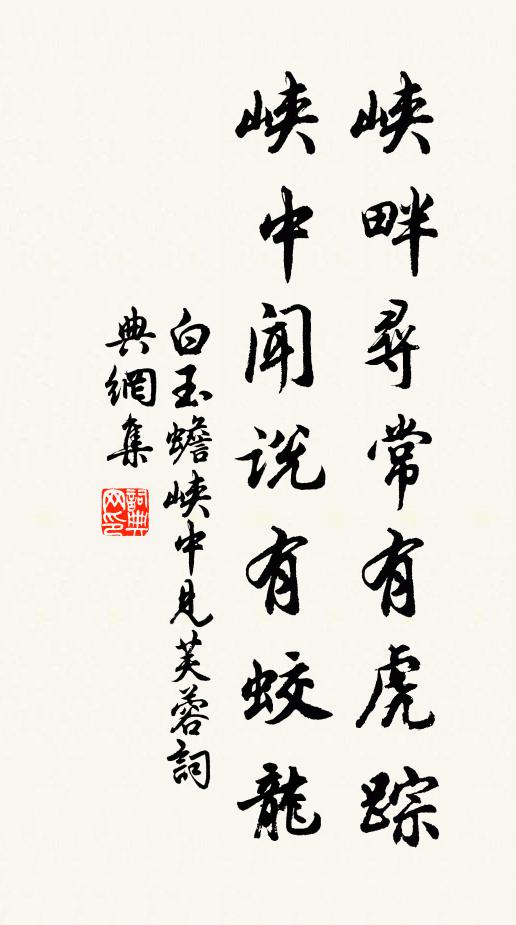 峡畔尋常有虎踪
峡中闻说有蛟龍
白玉蟾峡中見芙蓉詞
典網集
詞典网印